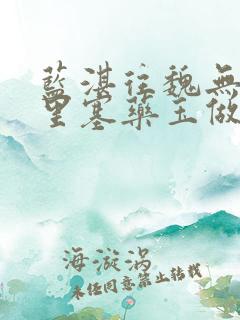 藍湛往魏無
里塞藥玉做
海漩涡
未经同意禁止转载